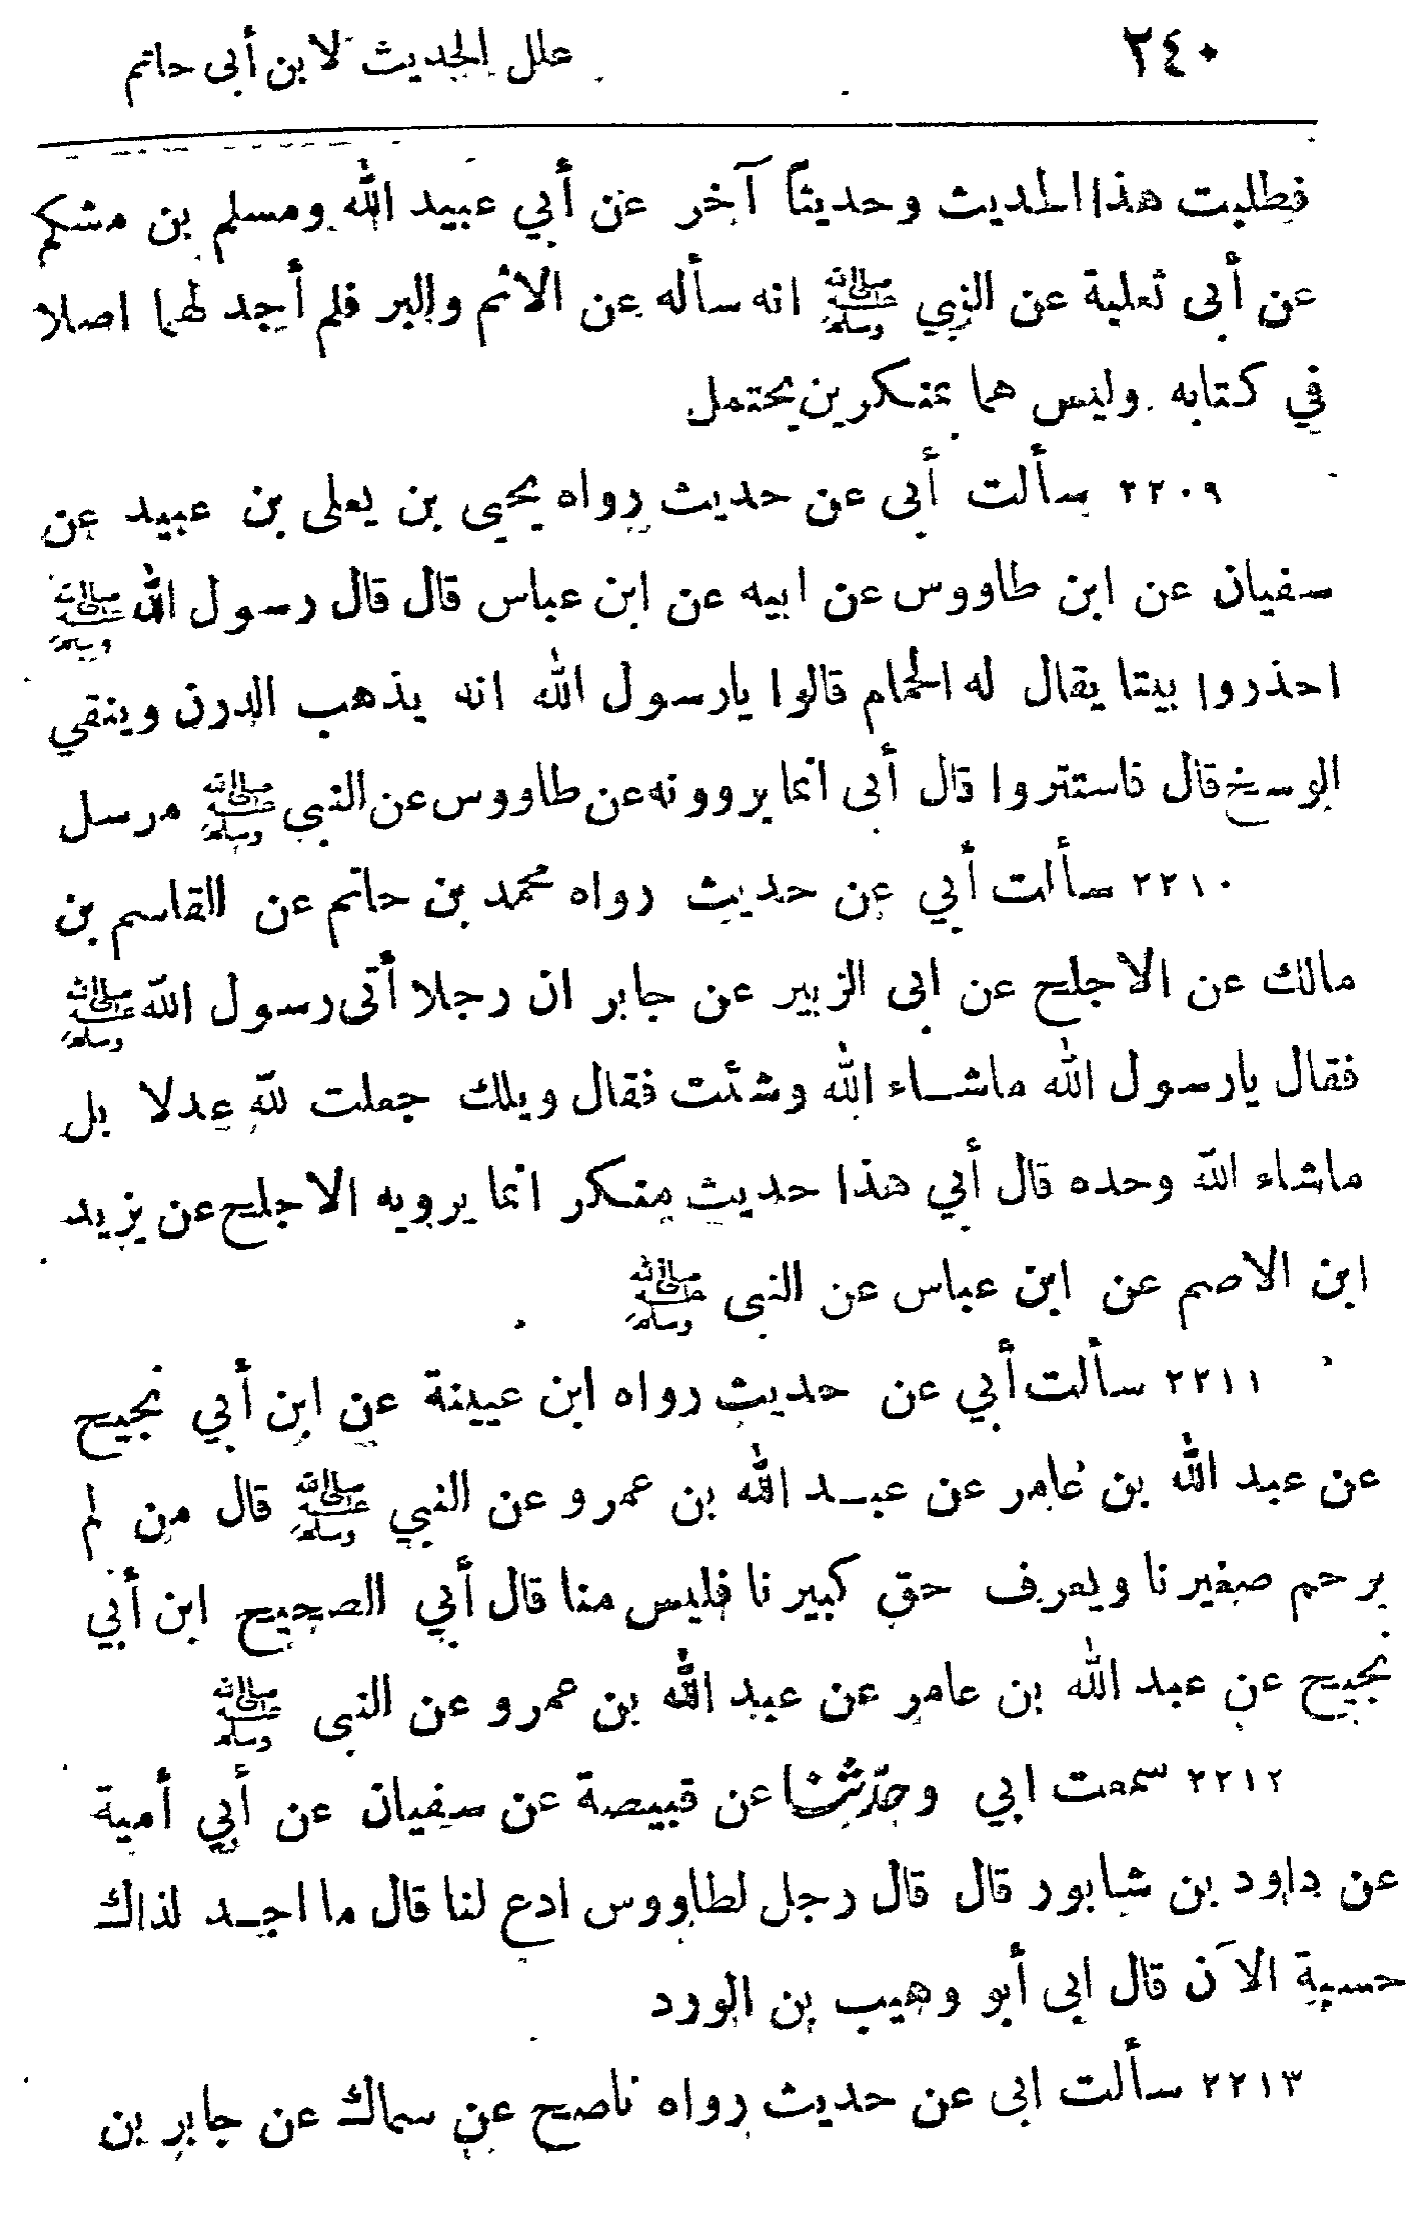 ٢٤٠ علل الحديث لابن أبى حاتم
فطلبت هذا الحديث وحديثاً آخر عن أبي عبيد الله ومسلم بن مشكم
عن أبى ثعلبة عن النبي ﷺ انه سأله عن الاثم والبر فلم أجد لهما اصلا
في كتابه وليس هما بمنكرين يحتمل
٢٢٠٩ سألت أبى عن حديث رواه يحيى بن يعلى بن عبيد عن
سفيان عن ابن طاووس عن ابيه عن ابن عباس قال قال رسول الله ﷺ
احذروا بيتا يقال له الحمام قالوا يارسول الله انه يذهب الدرن وينقي
الوسخ قال فاستتروا قال أبى انما يروونه عن طاووس عن النبي ﷺ مرسل
٢٢١٠ سألت أبي عن حديث رواه محمد بن حاتم عن القاسم بن
مالك عن الاجلح عن ابى الزبير عن جابر ان رجلا أتى رسول الله ﷺ
فقال يارسول الله ماشاء الله وشئت فقال ويلك جعلت لله عدلا بل
ماشاء الله وحده قال أبي هذا حديث منكر انما يرويه الاجلح عن يزيد
ابن الاصم عن ابن عباس عن النبى ﷺ
٢٢١١ سألت أبي عن حديث رواه ابن عيينة عن ابن أبي نجيح
عن عبد الله بن عامر عن عبد الله بن عمرو عن النبي ﷺ قال من لم
يرحم صغيرنا ويعرف حق كبيرنا فليس منا قال أبي الصحيح ابن أبي
نجيح عن عبد الله بن عامر عن عبد الله بن عمرو عن النبى ﷺ
٢٢١٢ سمعت ابي وحدثنا عن قبيصة عن سفيان عن أبي أمية
عن داود بن شابور قال قال رجل لطاووس ادع لنا قال ما اجد لذاك
حسبة الآن قال ابى أبو وهيب بن الورد
٢٢١٣ سألت ابى عن حديث رواه ناصح عن سماك عن جابر بن